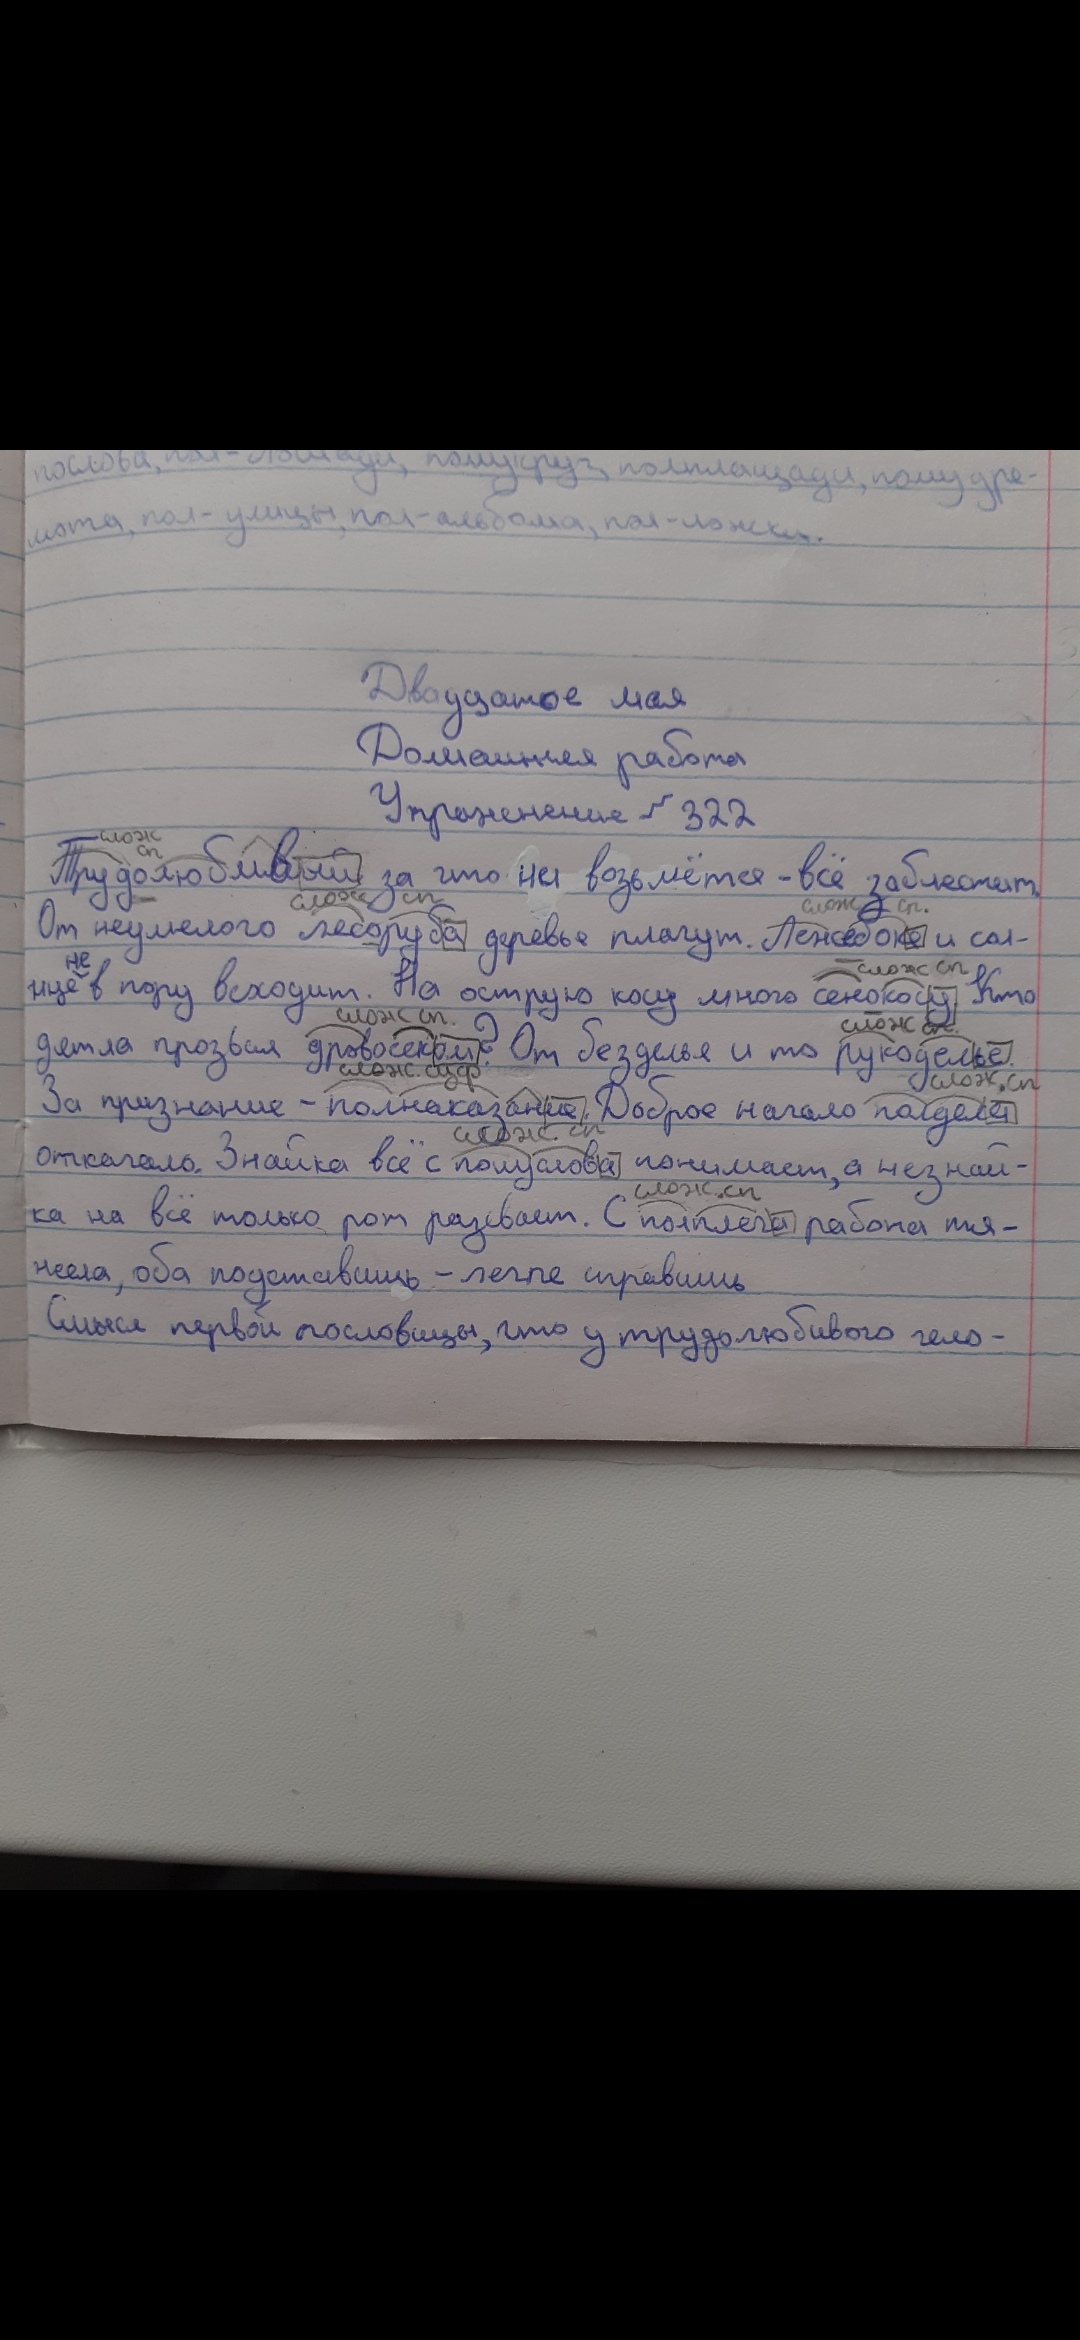 послова, пол-лошади, полукруг, полплощади, полудре-
мота, пол-улицы, пол-альбома, пол-ложки.
Двадцатое мая
Домашняя работа
Упражнение № 322
слож
сп
Трудолюбивый за что ни возьмётся - всё заблестит.
слож сп
слож сп.
От неумелого лесоруба деревья плачут. Лежебоке и сол-
не
слож сп
нце в пору всходит. На острую косу много сенокосу. Кто
слож сп.
слож сп.
дятла прозвал дровосеком? От безделья и то рукоделье.
слож. суф
слож. сп
За признание - полнаказание. Доброе начало полдела
слож. сп
откачало. Знайка всё с полуслова понимает, а незнай-
слож. сп
ка на всё только рот разевает. С полплеча работа тя-
жела, оба подставишь - легче справишь
Смысл первой пословицы, что у трудолюбивого чело-